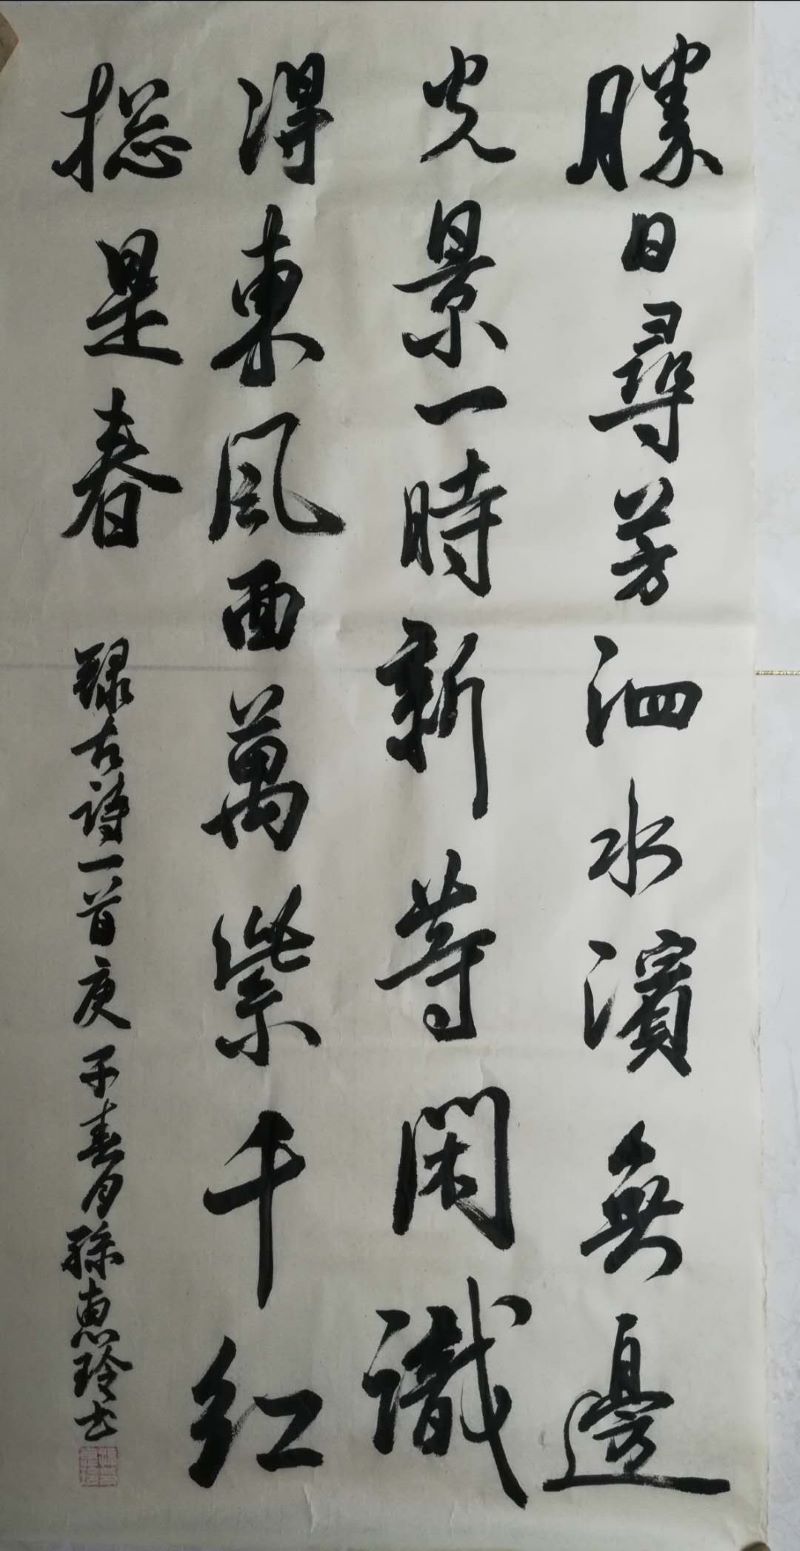 勝日尋芳泗水濱無邊
光景一時新等閑識
得東風面萬紫千紅
揔是春
録古詩一首庚子春月孫惠玲书